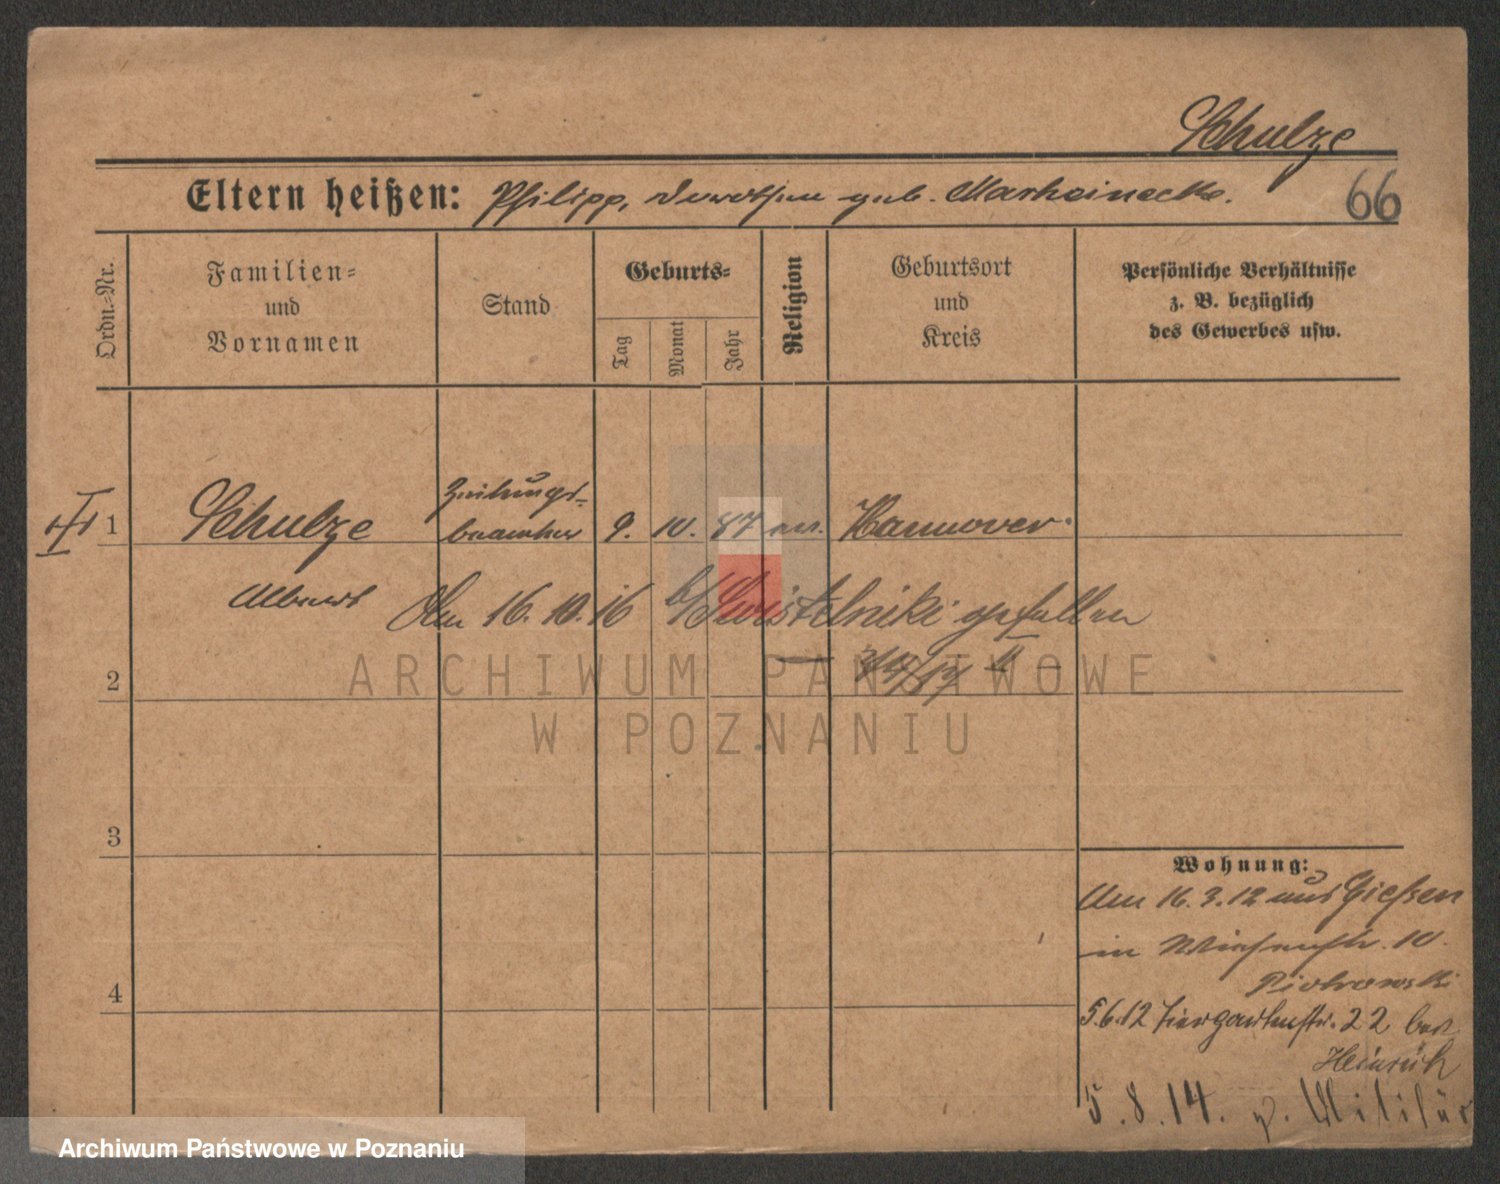 Schulze
Eltern heißen: Philipp, Dorothee geb. Marheinecke.
66
Ordn.=Nr.
Familien=
und
Vornamen
Stand
Geburts=
Tag
Monat
Jahr
Religion
Geburtsort
und
Kreis
Persönliche Verhältnisse
z. B. bezüglich
des Gewerbes usw.
1
Schulze
Zeitungs-
beamter
9. 10. 87 ev. Hannover
Albert
Am 16.10.16 b/Swistelniki gefallen
2
3
4
Wohnung:
Am 16.3.12 aus Gießen
in Wiesenstr. 10.
Piotrowski
5.6.12 Tiergartenstr. 22 bei
Heinrich
5.8.14. z. Militär
ARCHIWUM PAŃSTWOWE
W POZNANIU
Archiwum Państwowe w Poznaniu